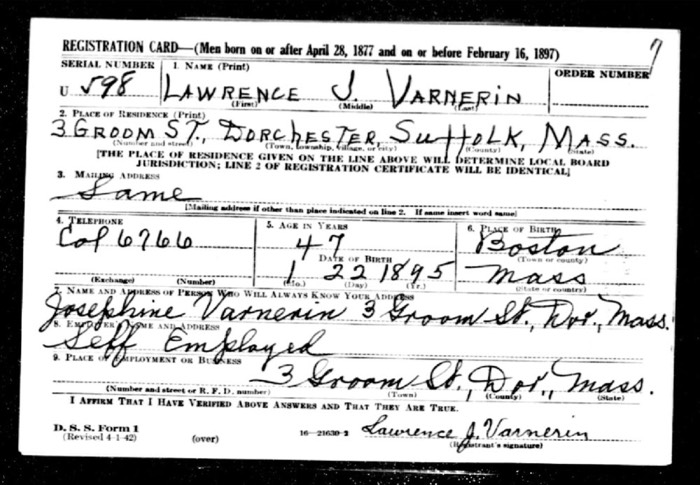 REGISTRATION CARD—(Men born on or after April 28, 1877 and on or before February 16, 1897)
SERIAL NUMBER 1. NAME (Print) ORDER NUMBER
U 598 LAWRENCE J. VARNERIN
(First) (Middle) (Last)
2. PLACE OF RESIDENCE (Print)
3 GROOM ST., DORCHESTER, SUFFOLK, MASS.
(Number and street) (Town, township, village, or city) (County) (State)
[THE PLACE OF RESIDENCE GIVEN ON THE LINE ABOVE WILL DETERMINE LOCAL BOARD
JURISDICTION; LINE 2 OF REGISTRATION CERTIFICATE WILL BE IDENTICAL]
3. MAILING ADDRESS
Same
[Mailing address if other than place indicated on line 2. If same insert word same]
4. TELEPHONE 5. AGE IN YEARS 6. PLACE OF BIRTH
Col 6766 47 Boston
DATE OF BIRTH (Town or county)
1 22 1895 Mass
(Exchange) (Number) (Mo.) (Day) (Yr.) (State or country)
7. NAME AND ADDRESS OF PERSON WHO WILL ALWAYS KNOW YOUR ADDRESS
Josephine Varnerin 3 Groom St., Dor., Mass.
8. EMPLOYER'S NAME AND ADDRESS
Self Employed
9. PLACE OF EMPLOYMENT OR BUSINESS
3 Groom St., Dor., Mass.
(Number and street or R. F. D. number) (Town) (County) (State)
I AFFIRM THAT I HAVE VERIFIED ABOVE ANSWERS AND THAT THEY ARE TRUE.
D. S. S. Form 1
(Revised 4-1-42) (over) 16—21630-2 Lawrence J. Varnerin
(Registrant's signature)